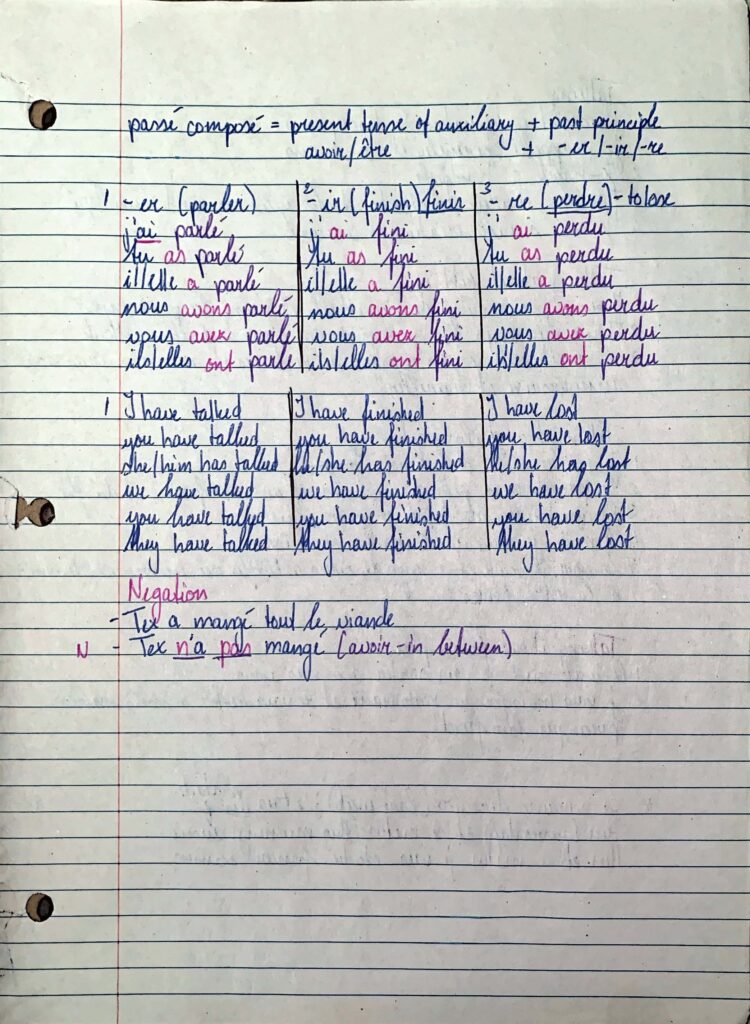 passé composé = present tense of auxiliary + past principle
avoir/être + -er/-ir/-re
1 -er (parler) 2 -ir (finish) finir 3 -re (perdre) - to lose
j'ai parlé j'ai fini j'ai perdu
tu as parlé tu as fini tu as perdu
il/elle a parlé il/elle a fini il/elle a perdu
nous avons parlé nous avons fini nous avons perdu
vous avez parlé vous avez fini vous avez perdu
ils/elles ont parlé ils/elles ont fini ils/elles ont perdu
1 I have talked I have finished I have lost
you have talked you have finished you have lost
she/him has talked he/she has finished he/she has lost
we have talked we have finished we have lost
you have talked you have finished you have lost
they have talked they have finished they have lost
Negation
- Tex a mangé tout le viande
N - Tex n'a pas mangé (avoir-in between)